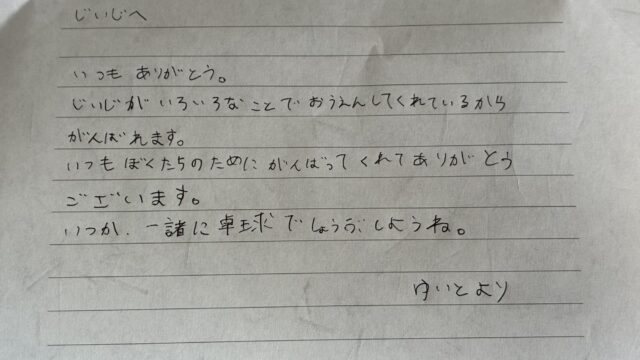 じいじへ
いつも ありがとう。
じいじが いろいろな ことで おうえんしてくれているから
がんばれます。
いつも ぼくたちのために がんばって くれて ありがとう
ございます。
いつか、一諸に 卓球で しょうぶ しようね。
ゆいと より